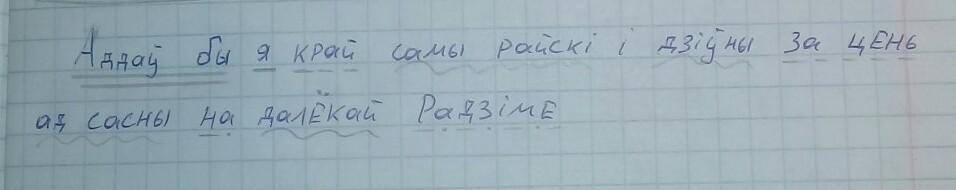 Аддаў бы я край самы райскі і дзіўны за цень
ад сасны на далёкай Радзіме